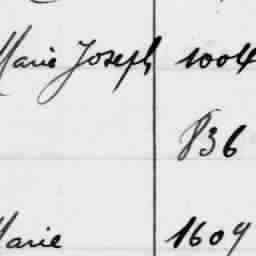 Marie Joseph 1004
836
Marie 1609